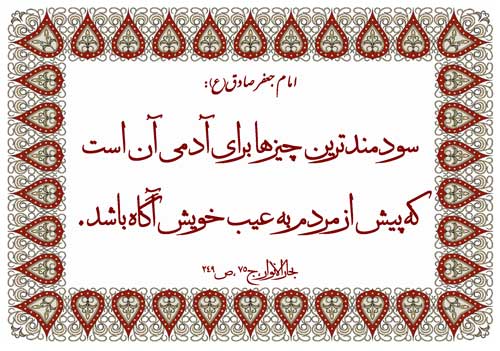 امام جعفر صادق(ع):
سودمندترین چیزها برای آدمی آن است
که پیش از مردم به عیب خویش آگاه باشد.
بحارالانوار، ج ۷۵ ، ص ۲۴۹